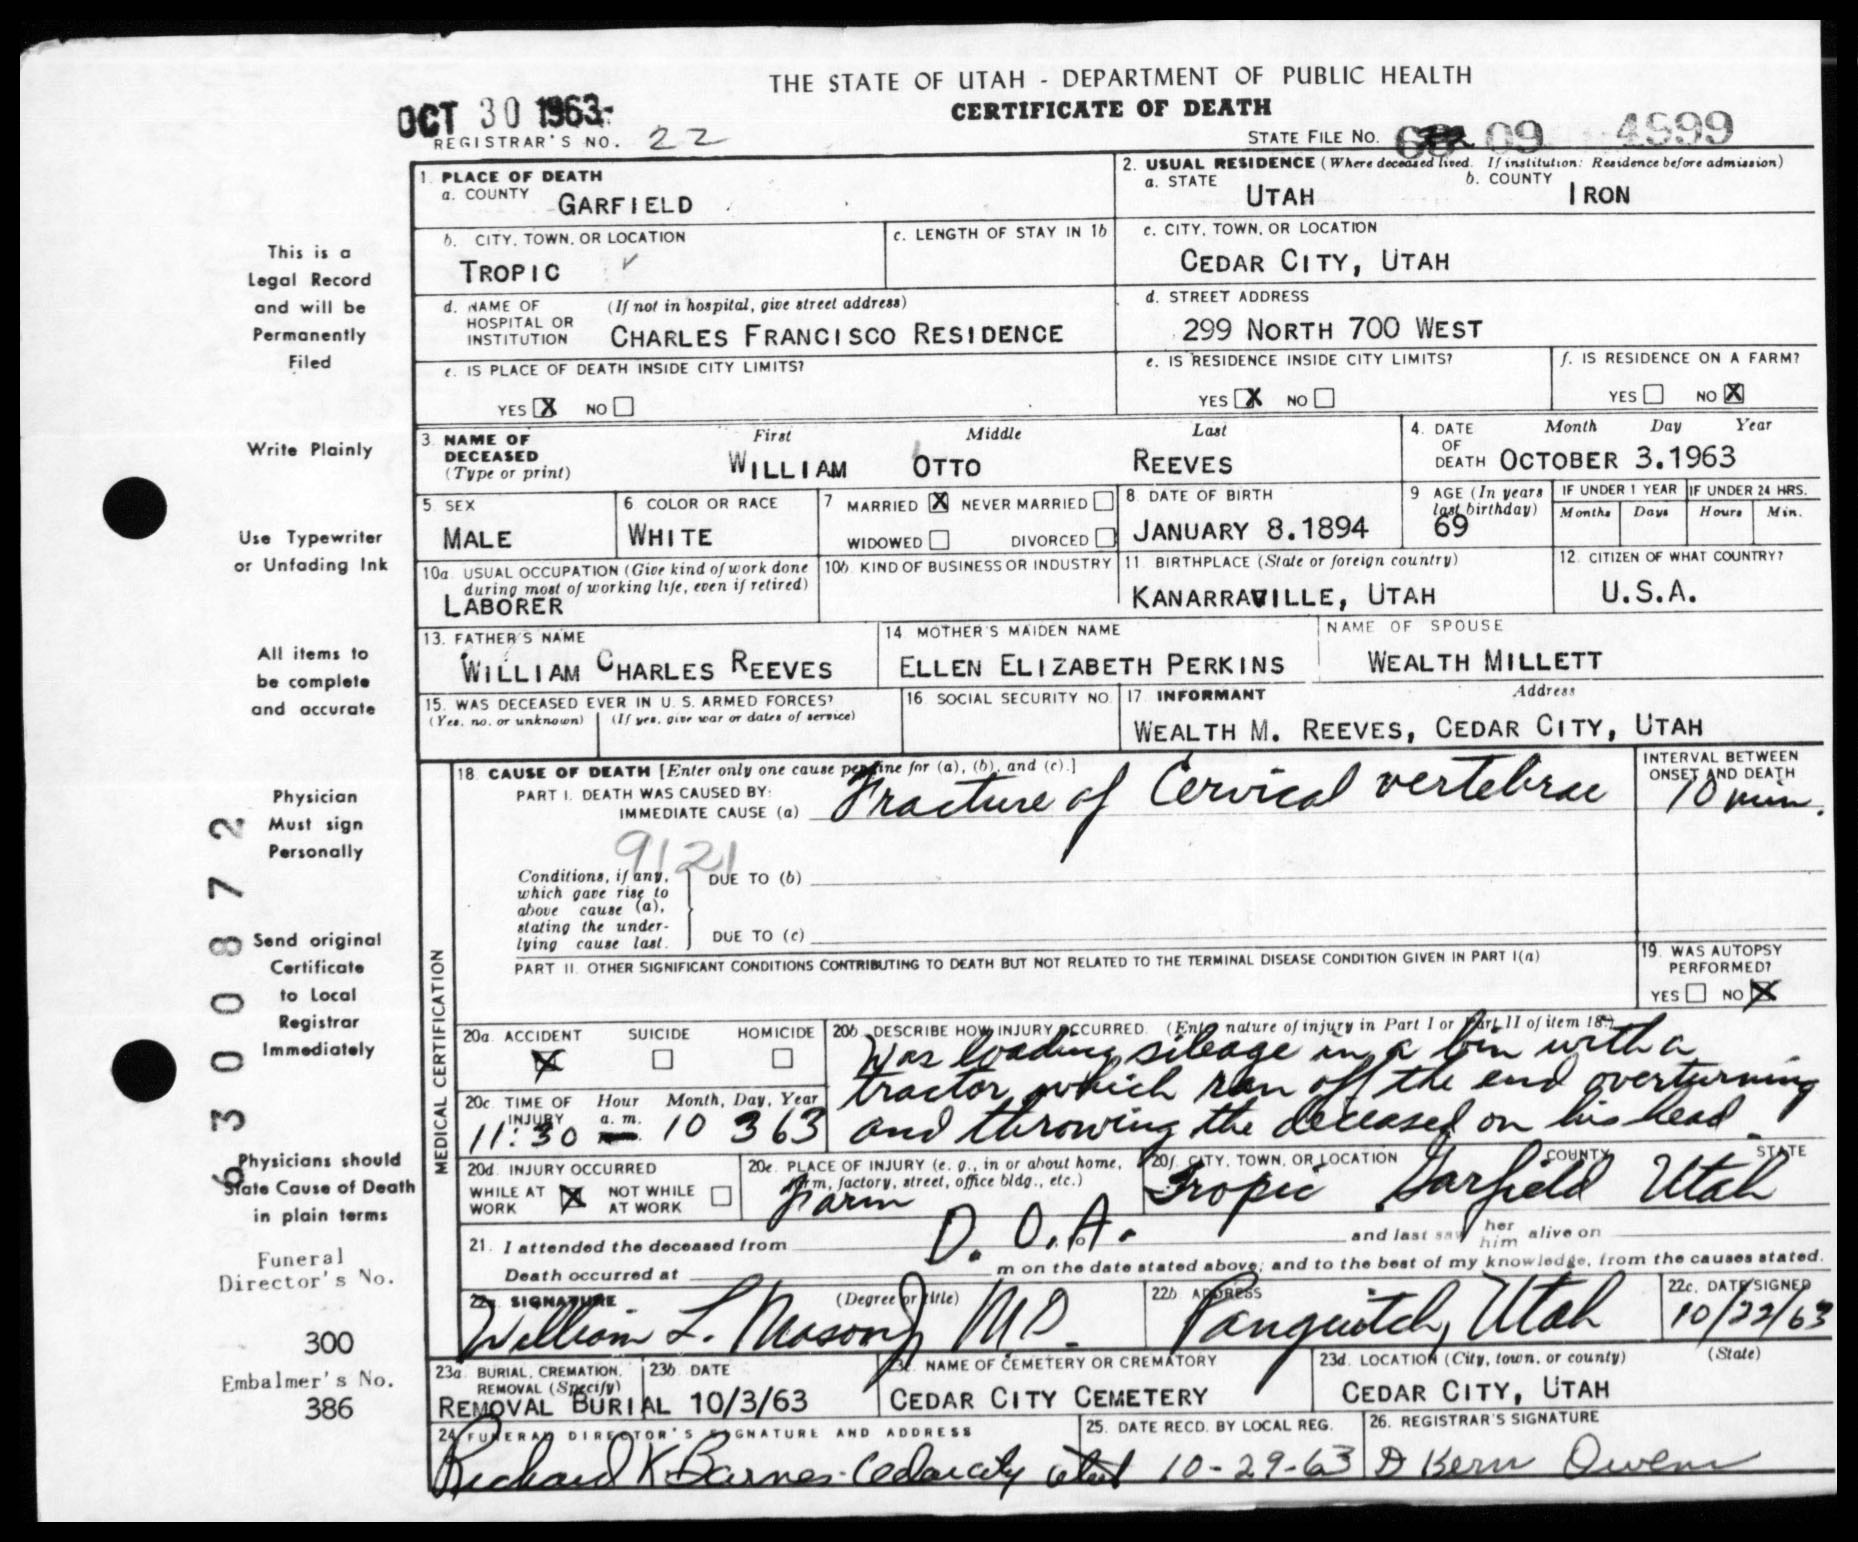 THE STATE OF UTAH - DEPARTMENT OF PUBLIC HEALTH
CERTIFICATE OF DEATH
OCT 30 1963
REGISTRAR'S NO. 22
STATE FILE NO. 09 4899
1. PLACE OF DEATH
a. COUNTY GARFIELD
2. USUAL RESIDENCE (Where deceased lived. If institution: Residence before admission)
a. STATE UTAH b. COUNTY IRON
b. CITY, TOWN, OR LOCATION TROPIC
c. LENGTH OF STAY IN 1b
c. CITY, TOWN, OR LOCATION
CEDAR CITY, UTAH
d. NAME OF HOSPITAL OR INSTITUTION (If not in hospital, give street address)
CHARLES FRANCISCO RESIDENCE
d. STREET ADDRESS
299 NORTH 700 WEST
e. IS PLACE OF DEATH INSIDE CITY LIMITS?
YES X NO
e. IS RESIDENCE INSIDE CITY LIMITS?
YES X NO
f. IS RESIDENCE ON A FARM?
YES NO X
3. NAME OF DECEASED (Type or print)
First Middle Last
WILLIAM OTTO REEVES
4. DATE OF DEATH Month Day Year
OCTOBER 3.1963
5. SEX
MALE
6. COLOR OR RACE
WHITE
7 MARRIED X NEVER MARRIED
WIDOWED DIVORCED
8. DATE OF BIRTH
JANUARY 8.1894
9 AGE (In years last birthday)
69
IF UNDER 1 YEAR IF UNDER 24 HRS.
Months Days Hours Min.
10a. USUAL OCCUPATION (Give kind of work done during most of working life, even if retired)
LABORER
10b. KIND OF BUSINESS OR INDUSTRY
11. BIRTHPLACE (State or foreign country)
KANARRAVILLE, UTAH
12. CITIZEN OF WHAT COUNTRY?
U.S.A.
13. FATHER'S NAME
WILLIAM CHARLES REEVES
14. MOTHER'S MAIDEN NAME
ELLEN ELIZABETH PERKINS
NAME OF SPOUSE
WEALTH MILLETT
15. WAS DECEASED EVER IN U. S. ARMED FORCES?
(Yes, no. or unknown) (If yes, give war or dates of service)
16. SOCIAL SECURITY NO.
17. INFORMANT Address
WEALTH M. REEVES, CEDAR CITY, UTAH
MEDICAL CERTIFICATION
18. CAUSE OF DEATH [Enter only one cause per line for (a), (b), and (c).]
PART I. DEATH WAS CAUSED BY:
IMMEDIATE CAUSE (a) Fracture of Cervical vertebrae
INTERVAL BETWEEN ONSET AND DEATH
10 min.
9121
Conditions, if any, which gave rise to above cause (a), stating the underlying cause last.
DUE TO (b)
DUE TO (c)
PART II. OTHER SIGNIFICANT CONDITIONS CONTRIBUTING TO DEATH BUT NOT RELATED TO THE TERMINAL DISEASE CONDITION GIVEN IN PART I(a)
19. WAS AUTOPSY PERFORMED?
YES NO X
20a. ACCIDENT SUICIDE HOMICIDE
X
20b. DESCRIBE HOW INJURY OCCURRED. (Enter nature of injury in Part I or Part II of item 18.)
Was loading sileage in a bin with a
tractor which ran off the end overturning
and throwing the deceased on his head.
20c. TIME OF INJURY Hour a. m. Month, Day, Year
11:30 10 3 63
20d. INJURY OCCURRED
WHILE AT WORK X NOT WHILE AT WORK
20e. PLACE OF INJURY (e. g., in or about home, farm, factory, street, office bldg., etc.)
Farm
20f. CITY, TOWN, OR LOCATION COUNTY STATE
Tropic Garfield Utah
21. I attended the deceased from D.O.A. to and last saw her him alive on
Death occurred at m on the date stated above; and to the best of my knowledge, from the causes stated.
22a. SIGNATURE (Degree or title)
William L. Mason Jr MD.
22b. ADDRESS
Panguitch, Utah
22c. DATE SIGNED
10/22/63
23a. BURIAL, CREMATION, REMOVAL (Specify)
REMOVAL BURIAL
23b. DATE
10/3/63
23c. NAME OF CEMETERY OR CREMATORY
CEDAR CITY CEMETERY
23d. LOCATION (City, town, or county) (State)
CEDAR CITY, UTAH
24. FUNERAL DIRECTOR'S SIGNATURE AND ADDRESS
Richard K. Barnes - Cedar City Utah
25. DATE RECD. BY LOCAL REG.
10-29-63
26. REGISTRAR'S SIGNATURE
D Kern Owens
This is a
Legal Record
and will be
Permanently
Filed
Write Plainly
Use Typewriter
or Unfading Ink
All items to
be complete
and accurate
Physician
Must sign
Personally
Send original
Certificate
to Local
Registrar
Immediately
Physicians should
State Cause of Death
in plain terms
Funeral
Director's No.
300
Embalmer's No.
386
6300872